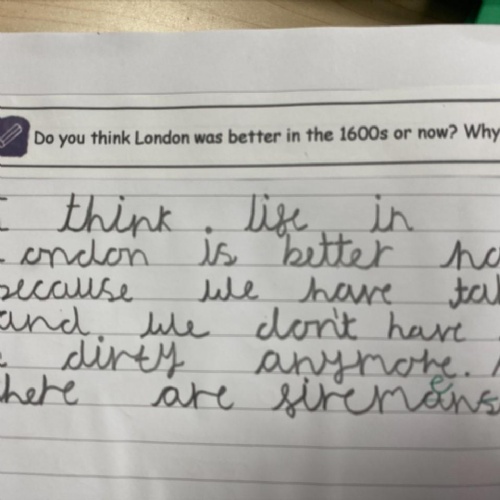 Do you think London was better in the 1600s or now? Why
I think life in
London is better
because we have
and we don't have
dirty anymore.
there are firemans